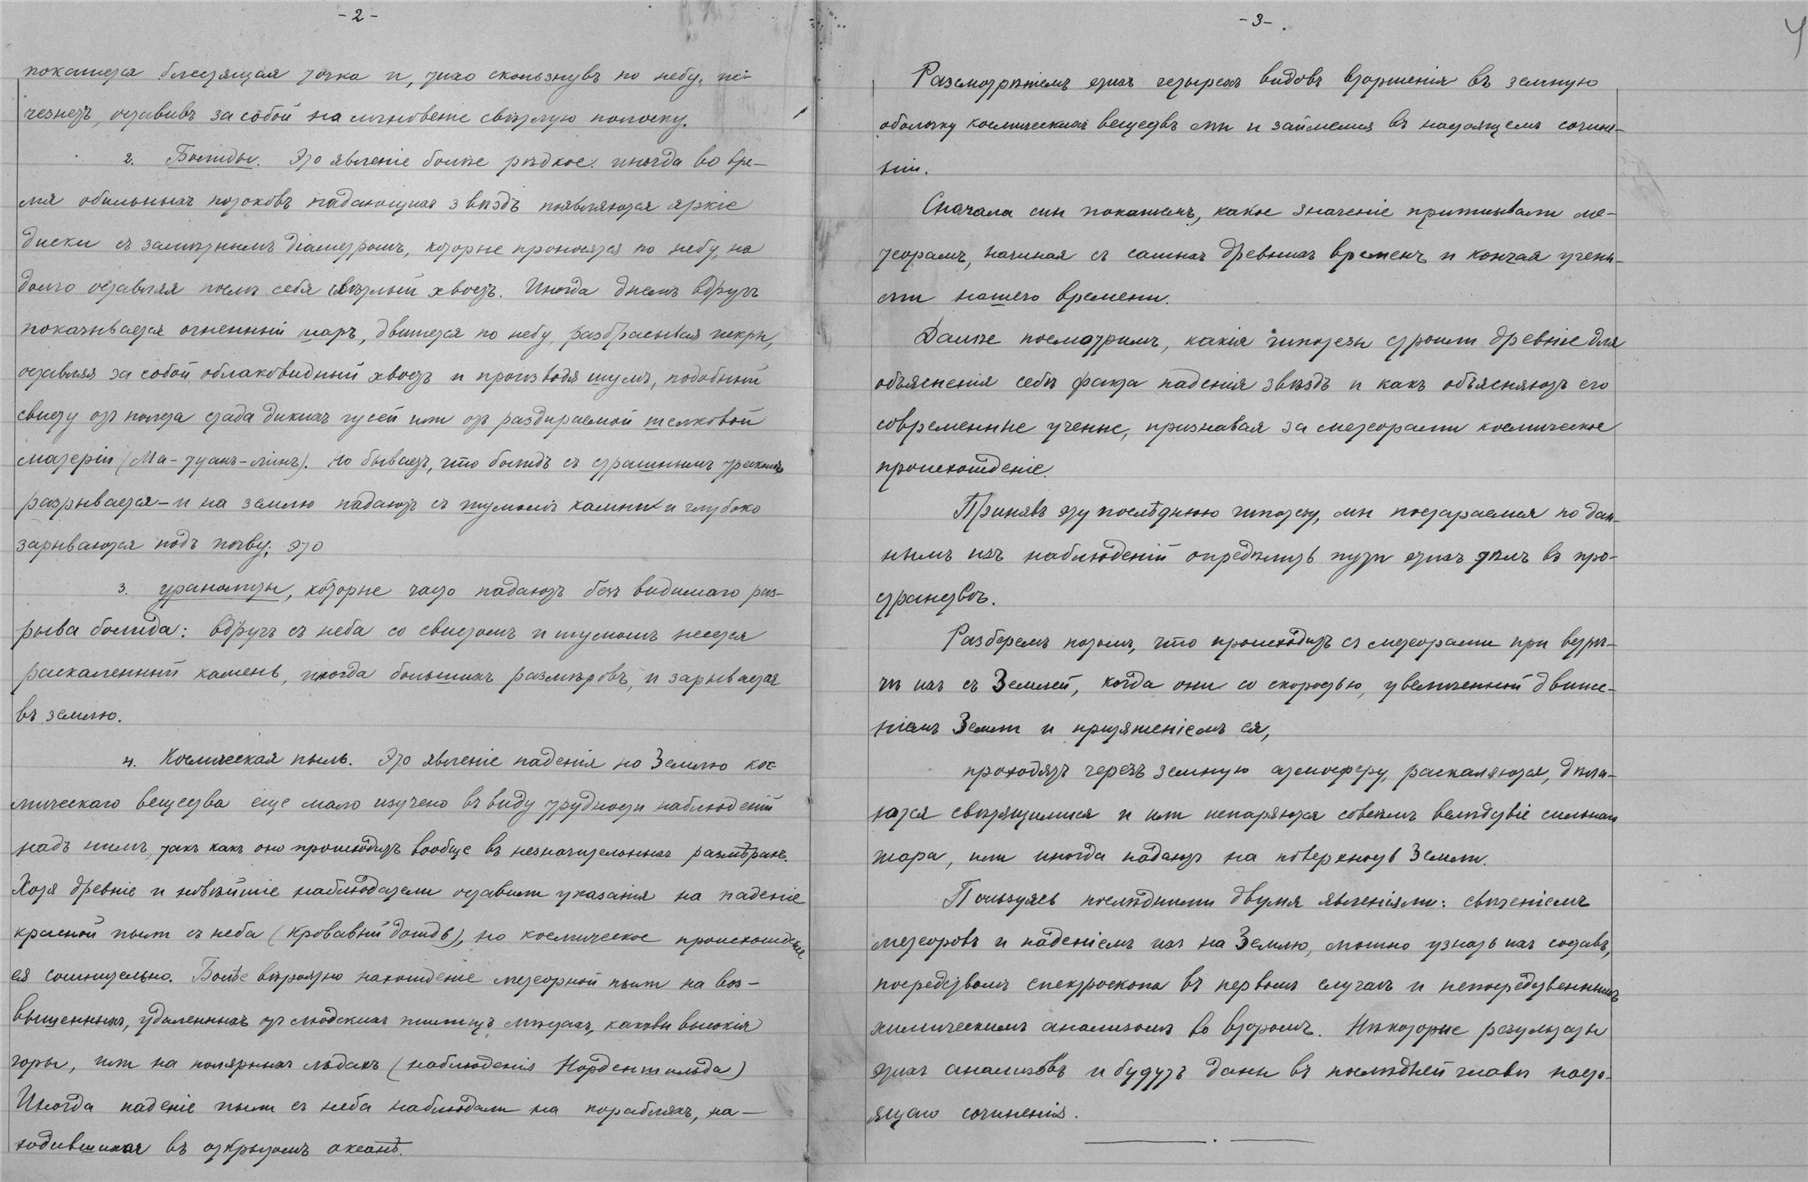 -2-
покатится блестящая точка и, тихо скользнувъ по небу, ис-
чезнетъ, оставивъ за собой на мгновеніе свѣтлую полоску.
2. Болиды. Это явленіе болѣе рѣдкое. Иногда во вре-
мя обильныхъ потоковъ падающихъ звѣздъ появляются яркіе
диски съ замѣтнымъ діаметромъ, которые проносятся по небу, на
долго оставляя послѣ себя свѣтлый хвостъ. Иногда днемъ вдругъ
показывается огненный шаръ, движется по небу, разбрасывая искры,
оставляя за собой облаковидный хвостъ и производя шумъ, подобный
свисту отъ полета стада дикихъ гусей или отъ раздираемой шелковой
матеріи (Ма-туанъ-линъ). Но бываетъ, что болидъ съ страшнымъ трескомъ
разрывается - и на землю падаютъ съ шумомъ камни и глубоко
зарываются подъ почву; это
3. уранолиты, которые часто падаютъ безъ видимаго раз-
рыва болида: вдругъ съ неба со свистомъ и шумомъ несется
раскаленный камень, иногда большихъ размѣровъ, и зарывается
въ землю.
4. Космическая пыль. Это явленіе паденія на Землю кос-
мическаго вещества еще мало изучено въ виду трудности наблюденій
надъ нимъ, такъ какъ оно происходитъ вообще въ незначительныхъ размѣрахъ.
Хотя древніе и новѣйшіе наблюдатели оставили указанія на паденіе
красной пыли съ неба (кровавый дождь), но космическое происхожденіе
ея сомнительно. Болѣе вѣроятно нахожденіе метеорной пыли на воз-
вышенныхъ, удаленныхъ отъ людскихъ жилищъ мѣстахъ, каковы высокія
горы, или на полярныхъ льдахъ (наблюденія Норденшильда)
Иногда паденіе пыли съ неба наблюдали на корабляхъ, на-
ходившихся въ открытомъ океанѣ.
-3-
Разсмотрѣніемъ этихъ четырехъ видовъ вторженія въ земную
оболочку космическихъ веществъ мы и займемся въ настоящемъ сочине-
ніи.
Сначала мы покажемъ, какое значеніе приписывали ме-
теорамъ, начиная съ самыхъ древнихъ временъ и кончая учены-
ми нашего времени.
Далѣе посмотримъ, какія гипотезы строили древніе для
объясненія себѣ факта паденія звѣздъ и какъ объясняютъ его
современные ученые, признавая за метеорами космическое
происхожденіе.
Принявъ эту послѣднюю гипотезу, мы постараемся по дан-
нымъ изъ наблюденій опредѣлить пути этихъ тѣлъ въ про-
странствѣ.
Разберемъ потомъ, что происходитъ съ метеорами при встрѣ-
чѣ ихъ съ Землей, когда они со скоростью, увеличенной движе-
ніемъ Земли и притяженіемъ ея,
проходятъ черезъ земную атмосферу, раскаляются, дѣла-
ются свѣтящимися и или испаряются совсѣмъ вслѣдствіе сильнаго
жара, или иногда падаютъ на поверхность Земли.
Пользуясь послѣдними двумя явленіями: свѣченіемъ
метеоровъ и паденіемъ ихъ на Землю, можно узнать ихъ составъ,
посредствомъ спектроскопа въ первомъ случаѣ и непосредственнымъ
химическимъ анализомъ во второмъ. Нѣкоторые результаты
этихъ анализовъ и будутъ даны въ послѣдней главѣ насто-
ящаго сочиненія.